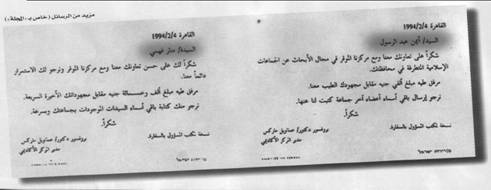 مزيد من الرسائل (خاص بـ «المجلة»)
القاهرة 1994/2/4
السيد/ أيمن عبد الرسول
شكراً على تعاونك معنا ومع مركزنا الموقر في مجال الأبحاث عن الجماعات
الإسلامية المتطرفة في محافظتك.
مرفق طيه مبلغ ألفي جنيه مقابل مجهودك الطيب معنا.
نرجو إرسال باقي أسماء أعضاء آخر جماعة كتبت لنا عنها.
شكراً.
نسخة لمكتب المسؤول بالسفارة.
بروفسور دكتور/ عمانويل ماركس
مدير المركز الأكاديمي
القاهرة 1994/2/4
السيدة/ منار فهمي
شكراً لك على حسن تعاونك معنا ومع مركزنا الموقر ونرجو لك الاستمرار
دائماً معنا.
مرفق طيه مبلغ ألفين وخمسمائة جنيه مقابل مجهوداتك الأخيرة السريعة.
نرجو منك كتابة باقي أسماء السيدات الموجودات بجماعتك وبسرعة.
شكراً.
نسخة لمكتب المسؤول بالسفارة.
بروفسور دكتور/ عمانويل ماركس
مدير المركز الأكاديمي